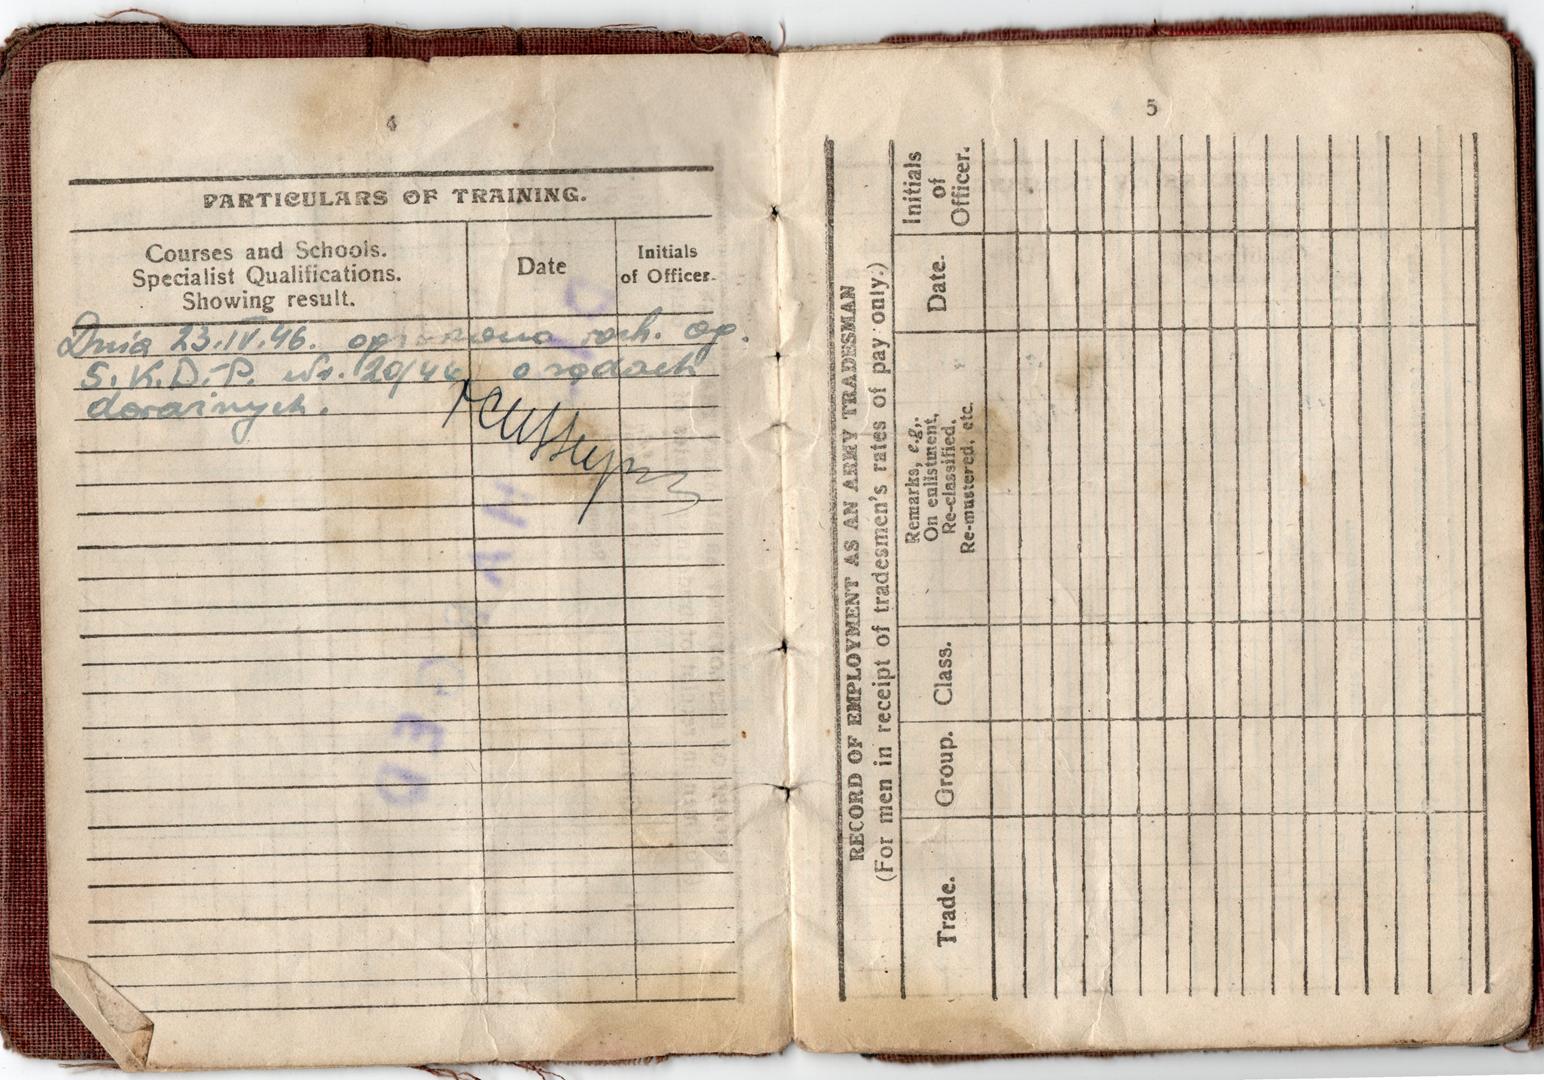 4
PARTICULARS OF TRAINING.
Courses and Schools.
Specialist Qualifications.
Showing result.
Date
Initials
of Officer.
Dnia 23.IV.46. rozk. op.
S.K.D.P. Nr. 20/46 o sądach
doraźnych.
5
RECORD OF EMPLOYMENT AS AN ARMY TRADESMAN
(For men in receipt of tradesmen's rates of pay only.)
Trade.
Group.
Class.
Remarks, e.g.,
On enlistment,
Re-classified,
Re-mustered, etc.
Date.
Initials
of
Officer.